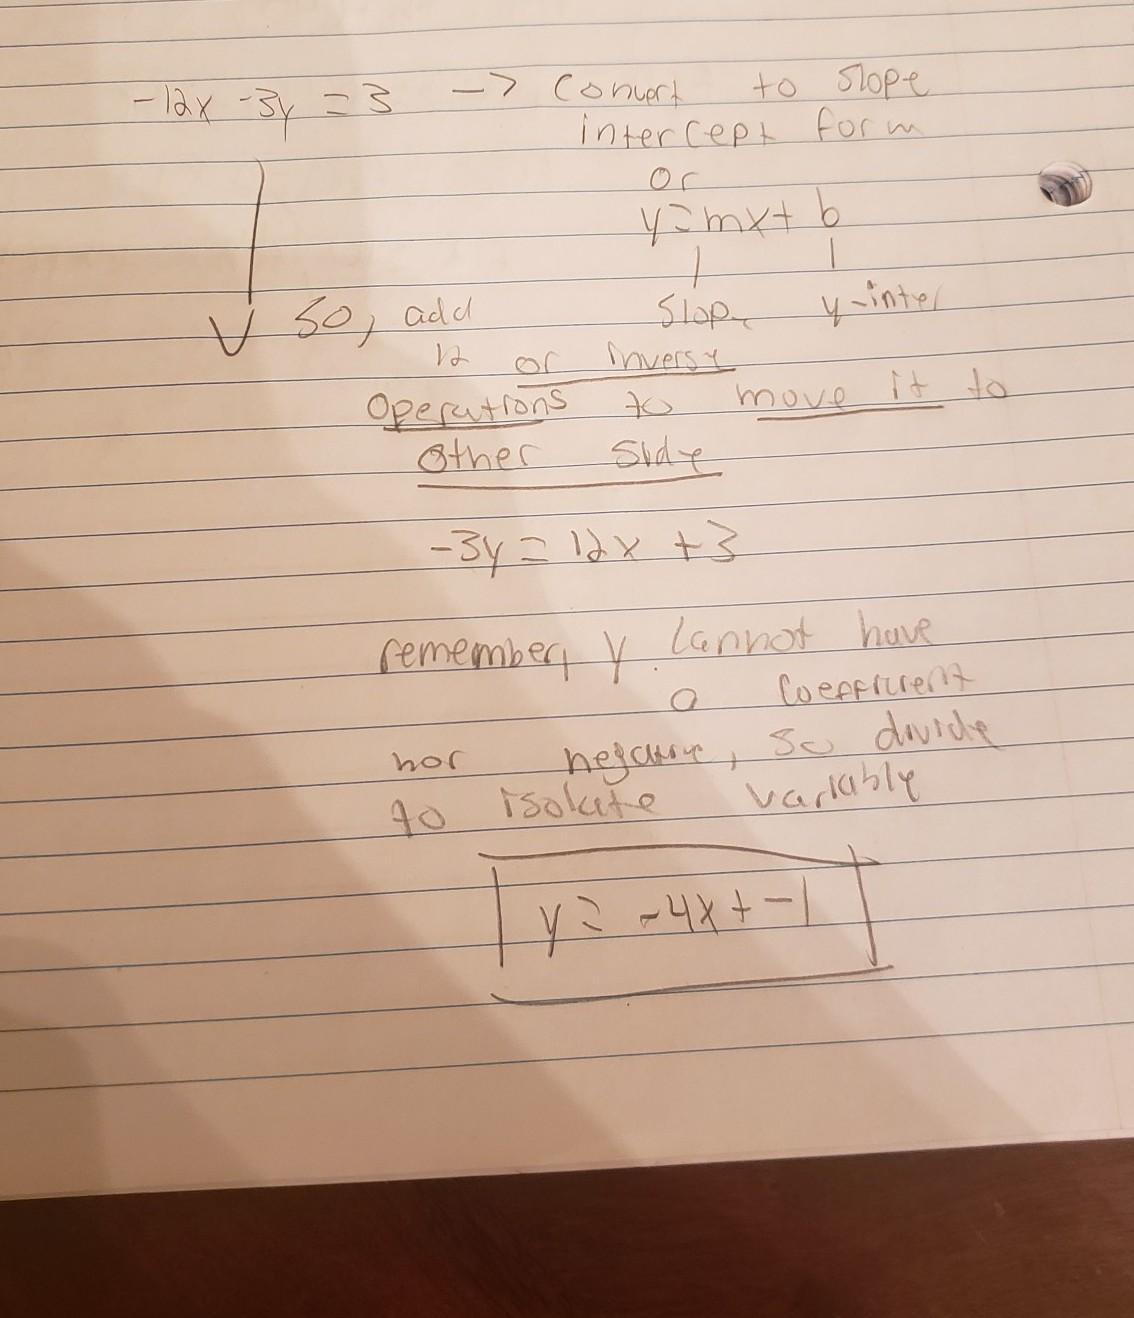 -12x -3y = 3 -> Convert to slope
intercept form
or
y=mx+ b
Slope y-inter
so, add
12 or inverse
operations to move it to
other side
-3y = 12x +3
remember, y cannot have
a coefficient
nor negative, so divide
to isolate variable
y= -4x+-1